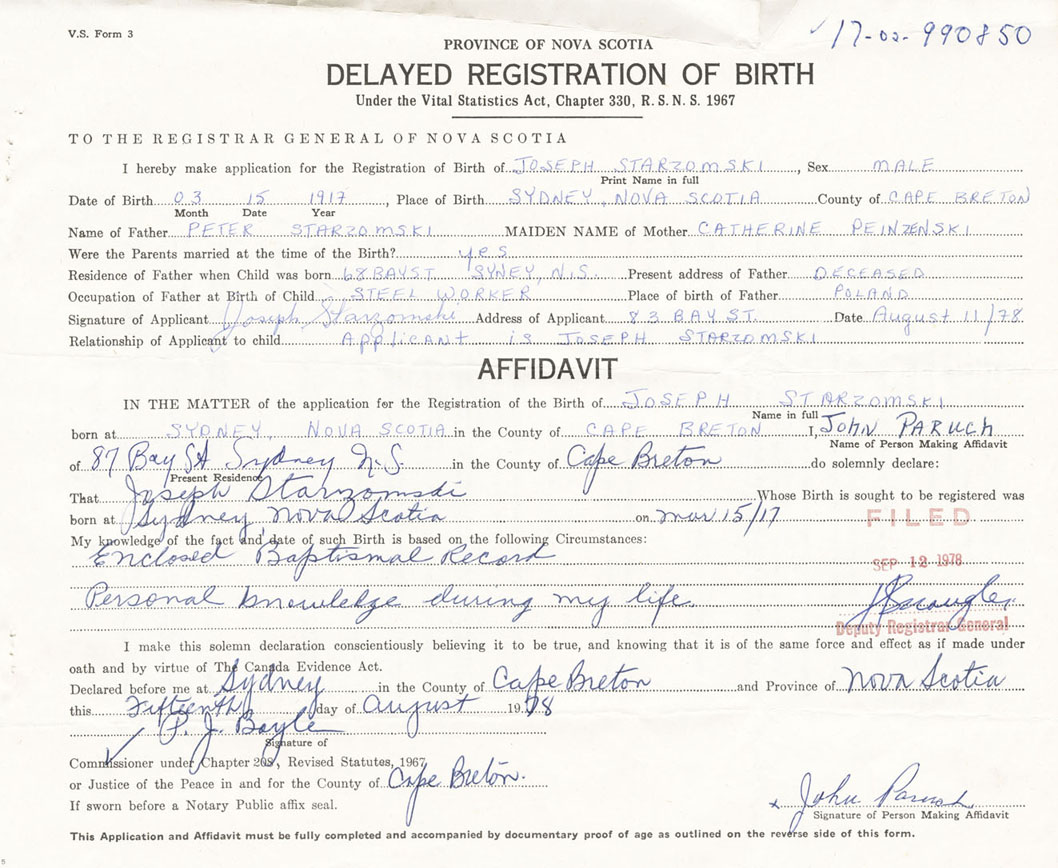 V.S. Form 3
17-02-990850
PROVINCE OF NOVA SCOTIA
DELAYED REGISTRATION OF BIRTH
Under the Vital Statistics Act, Chapter 330, R.S.N.S. 1967
TO THE REGISTRAR GENERAL OF NOVA SCOTIA
I hereby make application for the Registration of Birth of JOSEPH STARZOMSKI, Sex MALE
Print Name in full
Date of Birth 03 15 1917, Place of Birth SYDNEY, NOVA SCOTIA County of CAPE BRETON
Month Date Year
Name of Father PETER STARZOMSKI MAIDEN NAME of Mother CATHERINE PEINZENSKI
Were the Parents married at the time of the Birth? yes
Residence of Father when Child was born 68 BAY ST. SYNEY, N.S. Present address of Father DECEASED
Occupation of Father at Birth of Child STEEL WORKER Place of birth of Father POLAND
Signature of Applicant Joseph Starzomski Address of Applicant 83 BAY ST. Date August 11/78
Relationship of Applicant to child APPlicant is JOSEPH STARZOMSKI
AFFIDAVIT
IN THE MATTER of the application for the Registration of the Birth of JOSEPH STARZOMSKI
Name in full
born at SYDNEY, NOVA SCOTIA in the County of CAPE BRETON I, John PARUCH
Name of Person Making Affidavit
of 87 Bay St Sydney N.S. in the County of Cape Breton do solemnly declare:
Present Residence
That Joseph Starzomski Whose Birth is sought to be registered was
born at Sydney Nova Scotia on mar 15/17
FILED
My knowledge of the fact and date of such Birth is based on the following Circumstances:
Enclosed Baptismal Record
SEP 12 1978
Personal knowledge during my life.
Deputy Registrar General
I make this solemn declaration conscientiously believing it to be true, and knowing that it is of the same force and effect as if made under
oath and by virtue of The Canada Evidence Act.
Declared before me at Sydney in the County of Cape Breton and Province of Nova Scotia
this Fifteenth day of August 1978
P. J. Boyle
Signature of
Commissioner under Chapter 208, Revised Statutes, 1967
or Justice of the Peace in and for the County of Cape Breton.
If sworn before a Notary Public affix seal.
x John Paruch
Signature of Person Making Affidavit
This Application and Affidavit must be fully completed and accompanied by documentary proof of age as outlined on the reverse side of this form.